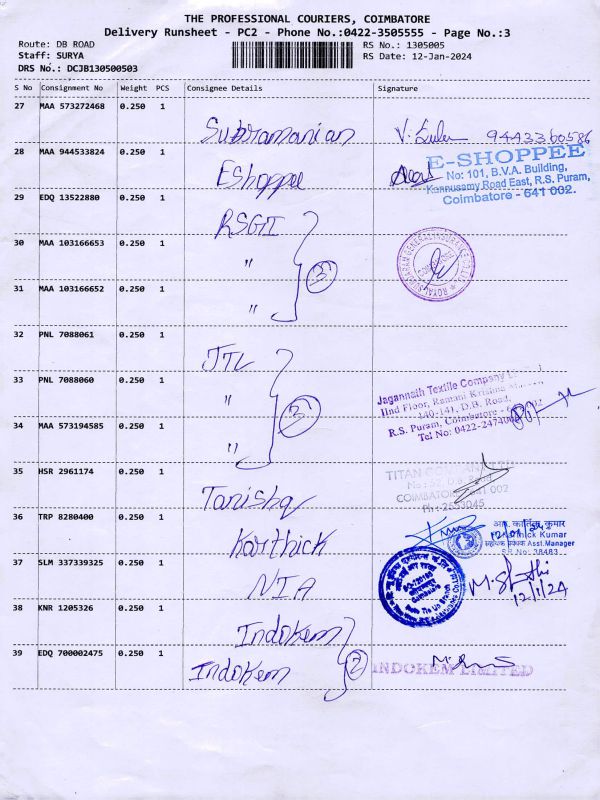 THE PROFESSIONAL COURIERS, COIMBATORE
Delivery Runsheet - PC2 - Phone No.:0422-3505555 - Page No.:3
Route: DB ROAD
RS No.: 1305005
Staff: SURYA
RS Date: 12-Jan-2024
DRS No.: DCJB130500503
S No Consignment No Weight PCS Consignee Details Signature
27 MAA 573272468 0.250 1
Subramanian 9443360586
28 MAA 944533824 0.250 1
Eshoppee
E-SHOPPEE
No: 101, B.V.A. Building,
Kannusamy Road East, R.S. Puram,
Coimbatore - 641 002.
29 EDQ 13522880 0.250 1
RSGI
30 MAA 103166653 0.250 1
"
3
ROYAL SUNDARAM GENERAL INSURANCE CO. LTD
COIMBATORE
31 MAA 103166652 0.250 1
"
32 PNL 7088061 0.250 1
JTL
33 PNL 7088060 0.250 1
"
3
Jagannath Textile Company
IInd Floor, Ramani Krishna
140-141, D.B. Road,
R.S. Puram, Coimbatore - 002
Tel No: 0422-247400
34 MAA 573194585 0.250 1
"
35 HSR 2961174 0.250 1
Tanishq
TITAN
COIMBATORE 641 002
Ph : 2553045
36 TRP 8280400 0.250 1
Karthick
आर. कार्तिक कुमार
12/01/24
Karthick Kumar
Asst.Manager
SR No: 38483
37 SLM 337339325 0.250 1
NIA
12/1/24
38 KNR 1205326 0.250 1
Indokem
39 EDQ 700002475 0.250 1
Indokem
2
INDOKEM LIMITED